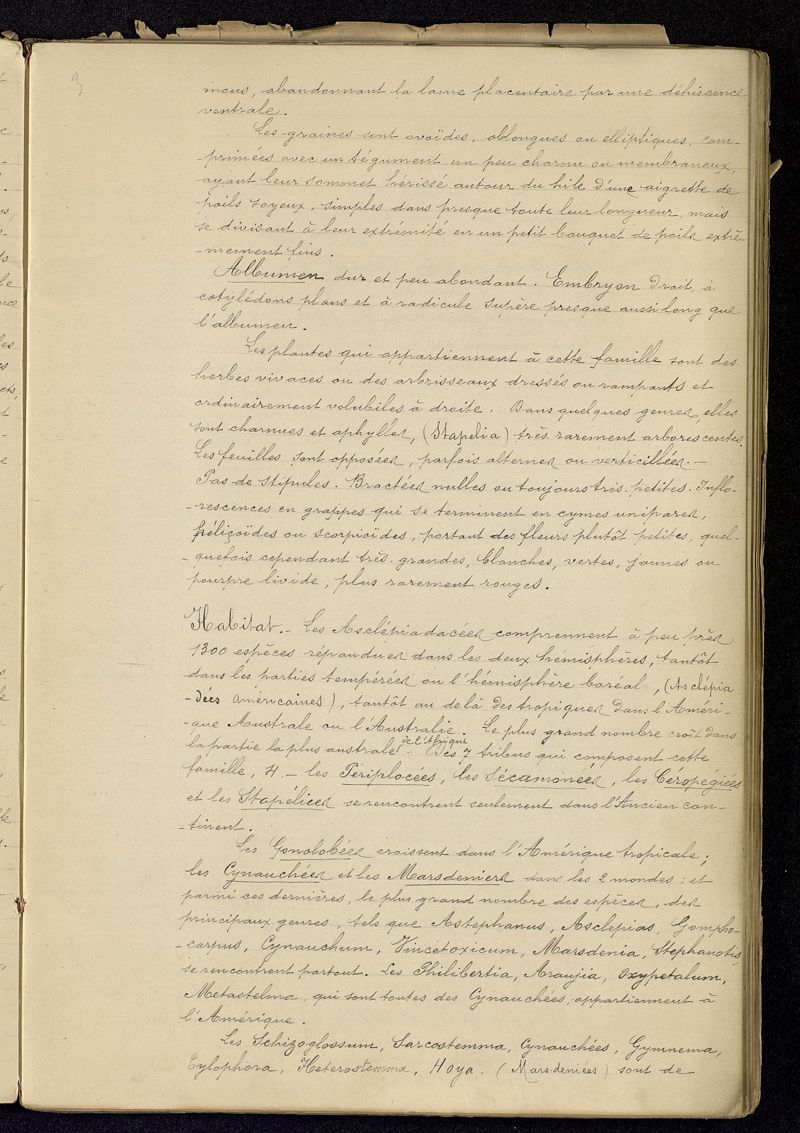 3
mous, abandonnant la lame placentaire par une déhiscence
ventrale.
Les graines sont ovoïdes, oblongues ou elliptiques, com-
primées avec un tégument un peu charnu ou membraneux,
ayant leur sommet hérissé autour du hile d'une aigrette de
poils soyeux, simples dans presque toute leur longueur, mais
se divisant à leur extremité en un petit bouquet de poils extrê-
-mement fins.
Albumen dur et peu abondant. Embryon droit, à
cotylédons plans et à radicule supère presque aussi long que
l'albumen.
Les plantes qui appartiennent à cette famille sont des
herbes vivaces ou des arbrisseaux dressés ou rampants et
ordinairement volubiles à droite. Dans quelques genres, elles
sont charnues et aphylles, (Stapelia) très rarement arborescentes
Les feuilles sont opposées, parfois alternes ou verticillées.-
Pas de stipules. Bractées nulles ou toujours très-petites. Inflo-
-rescences en grappes qui se terminent en cymes unipares,
héliçoïdes ou scorpioïdes, portant des fleurs plutôt petites, quel-
-quefois cependant très-grandes, blanches, vertes, jaunes ou
pourpre livide, plus rarement rouges.
Habitat.- Les Asclépiadacées comprennent à peu près
1300 espèces répandues dans les deux hémisphères, tantôt
dans les parties tempérées ou l'hémisphère boréal, (Asclépia
-dées américaines), tantôt au delà des tropiques dans l'Améri-
que Australe ou l'Australie. Le plus grand nombre croît dans
la partie la plus australe de l'Afrique. Des 7 tribus qui composent cette
famille, 4 - les Périplocées, les Sécamonées, les Céropégiées
et les Stapéliées se rencontrent seulement dans l'Ancien con-
-tinent.
Les Gonolobées croissent dans l'Amérique tropicale;
les Cynauchées et les Marsdeniers dans les 2 mondes; et
parmi ces dernières, le plus grand nombre des espèces, des
principaux genres, tels que Astephanus, Asclepias, Gompho-
-carpus, Cynauchum, Vincetoxicum, Marsdenia, Stephanotis,
se rencontrent partout. Les Philibertia, Araujia, Oxypetalum,
Metastelma, qui sont toutes des Cynauchées, appartiennent à
l'Amérique.
Les Schizoglossum, Sarcostemma, Cynauchées, Gymnema,
Tylophora, Heterostemma, Hoya. (Marsdeniées) sont de